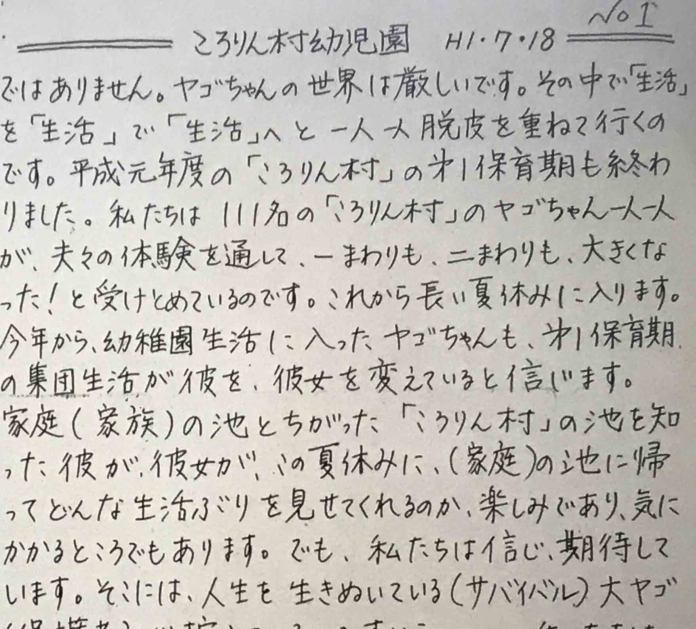 No 1
ころりん村幼児園 H1・7・18
ではありません。ヤゴちゃんの世界は厳しいです。その中で「生活」
を「生活」で「生活」へと一人一人脱皮を重ねて行くの
です。平成元年度の「ころりん村」の㐧1保育期も終わ
りました。私たちは111名の「ころりん村」のヤゴちゃん一人一人
が、夫々の体験を通して、一まわりも、二まわりも、大きくな
った!と受けとめているのです。これから長い夏休みに入ります。
今年から、幼稚園生活に入ったヤゴちゃんも、㐧1保育期
の集団生活が彼を、彼女を変えていると信じます。
家庭(家族)の池とちがった「ころりん村」の池を知
った彼が、彼女が、この夏休みに、(家庭)の池に帰
ってどんな生活ぶりを見せてくれるのか、楽しみであり、気に
かかるところでもあります。でも、私たちは信じ、期待して
います。そこには、人生を生きぬいている(サバイバル)大ヤゴ